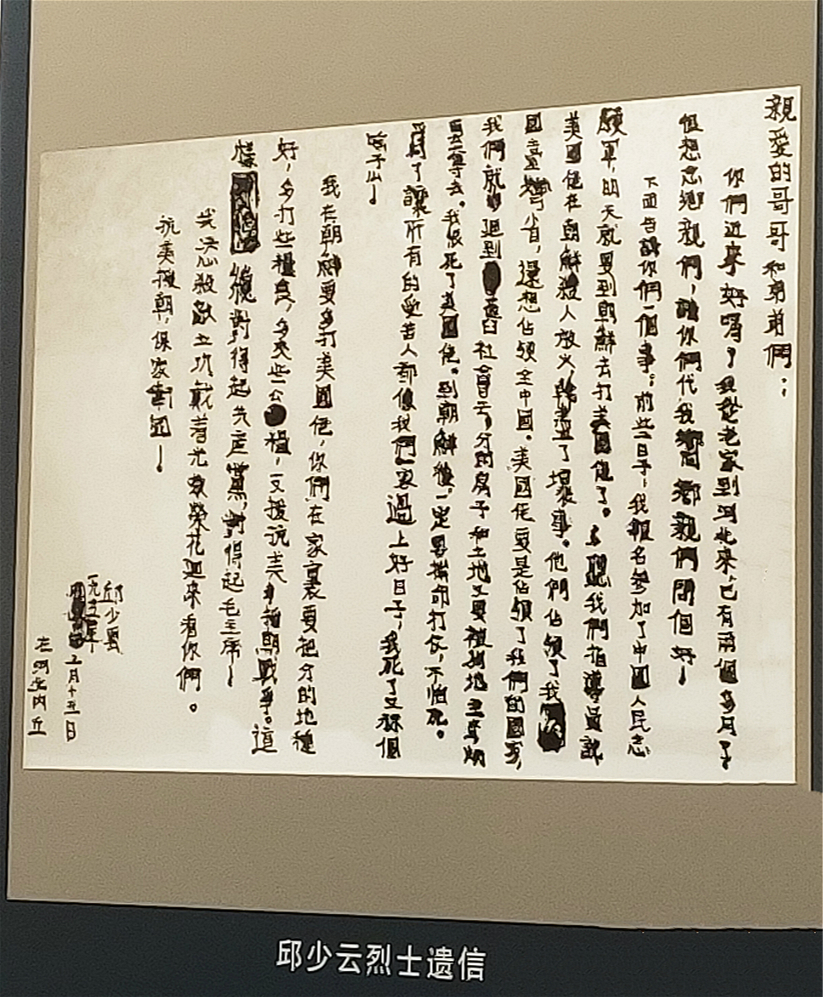 親愛的哥哥和弟弟們：
你們近來好嗎？我從老家到河北來，已有兩個多月了
很想念鄉親們，請你們代我向鄉親們問個好！
下面告訴你們一個事：前些日子，我報名參加了中國人民志
願軍，明天就要到朝鮮去打美國佬了。聽我們指導員說
美國佬在朝鮮殺人放火，幹盡了壞事。他們佔領了我
國臺灣省，還想佔領全中國。美國佬要是佔領了我們的國家，
我們就退到舊社會去，分的房子和土地又要被地主
奪去。我恨死了美國佬。到朝鮮後，一定要拼命打仗，不怕死。
爲了讓所有的受苦人都像我們家過上好日子，我死了又算個
啥子么！
我在朝鮮要多打美國佬，你們在家裏要把分的地種
好，多打些糧食，多交些公糧，支援抗美援朝戰爭。這
樣纔對得起共產黨，對得起毛主席！
我決心殺敵立功，戴着光榮花回來看你們。
抗美援朝，保家衛國！
邱少雲
一九五一年
三月十五日
在河北內丘
邱少云烈士遗信